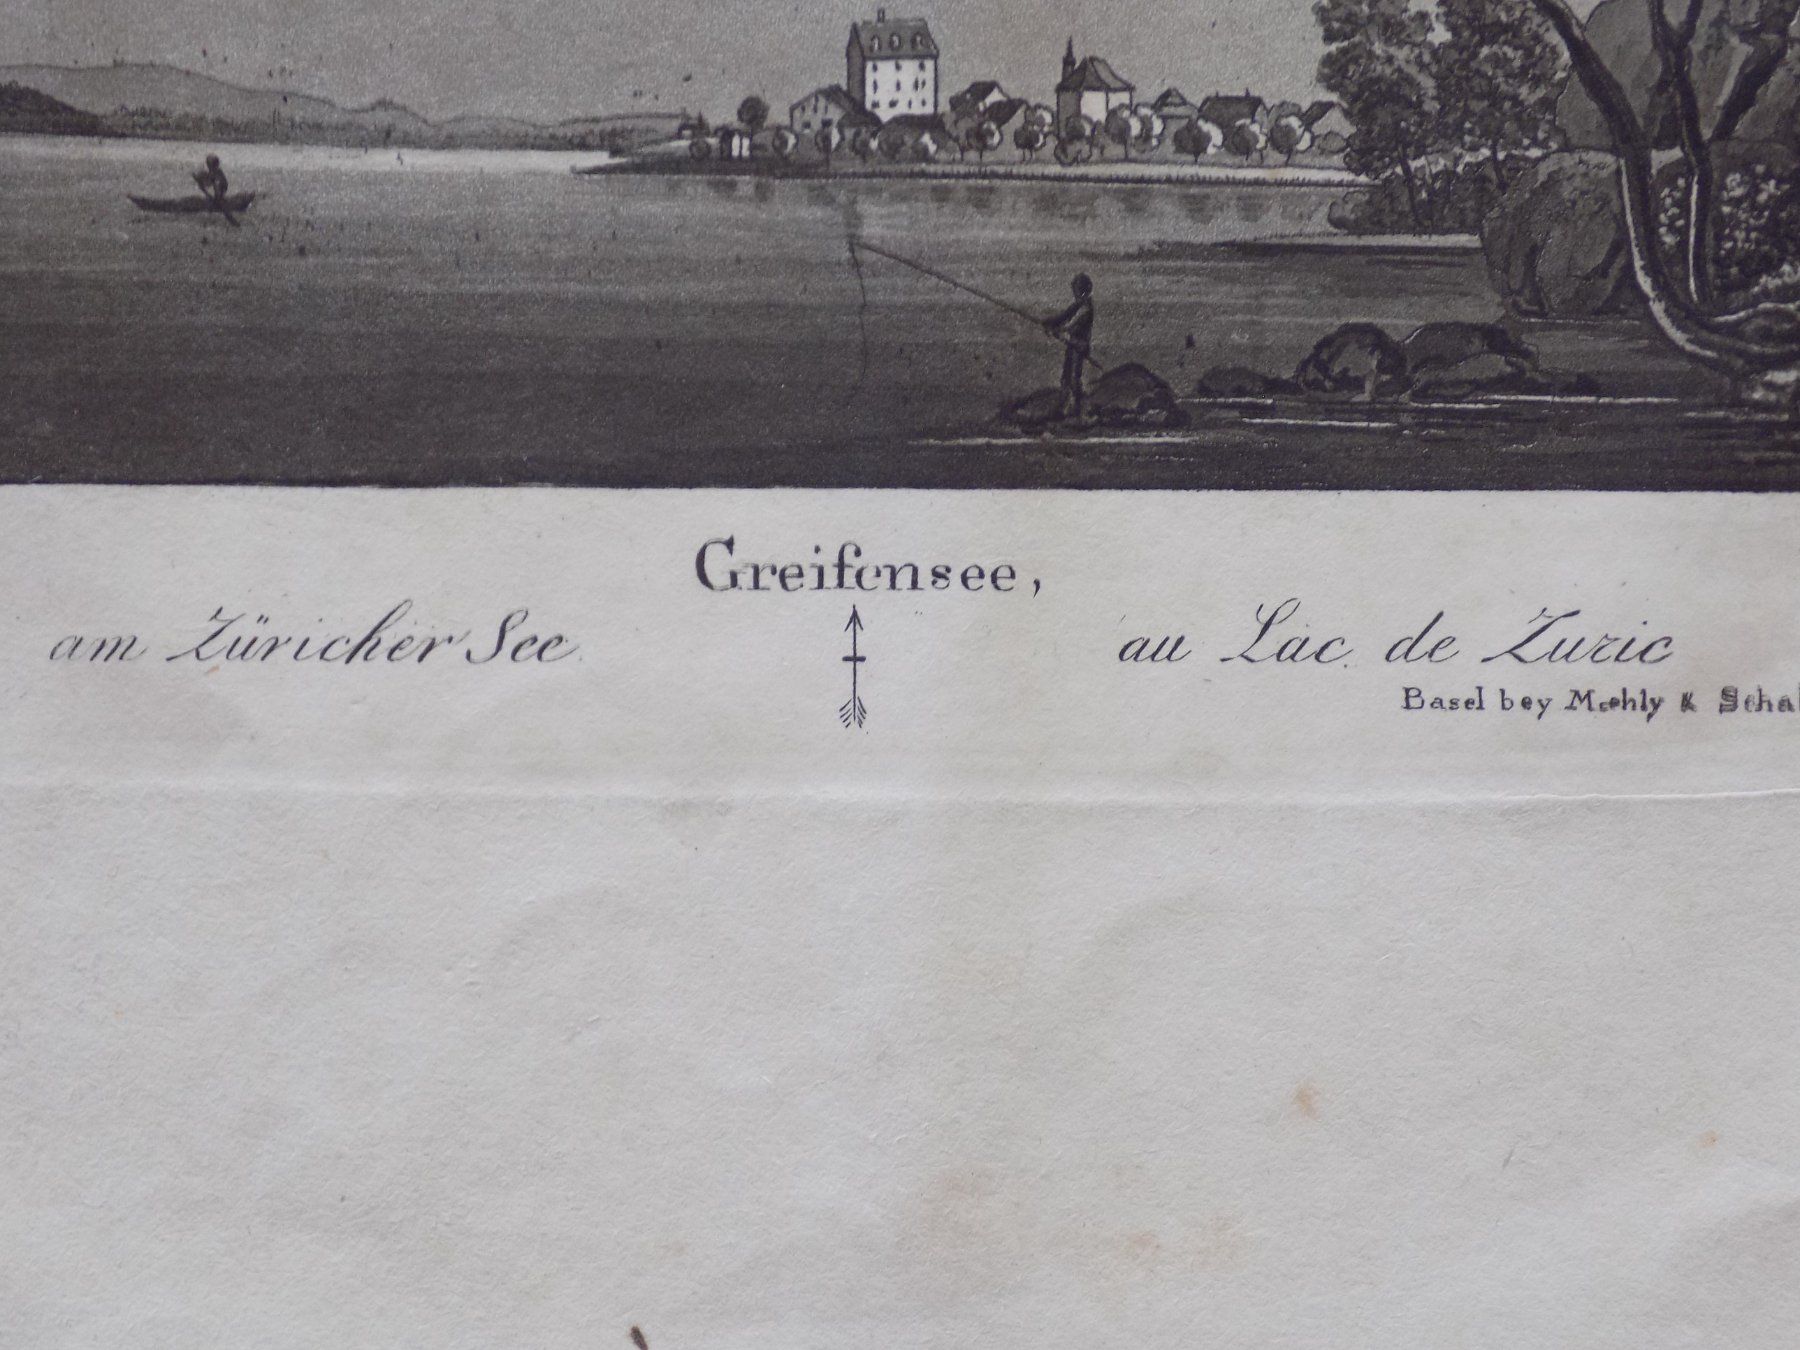 Greifensee,
am Züricher See au Lac de Zuric
Basel bey Mæhly &